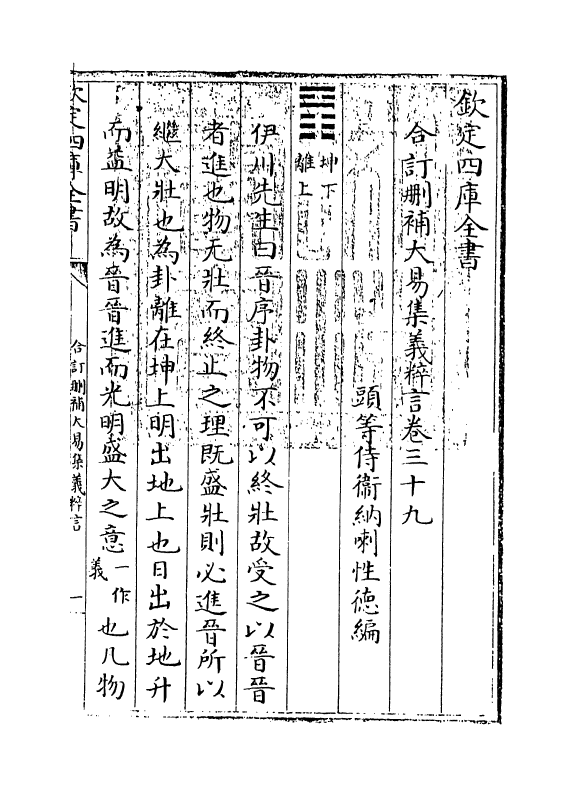 欽定四庫全書
合訂刪補大易集義粹言卷三十九
頭等侍衞納喇性德編
坤下
離上
伊川先生曰晉序卦物不可以終壯故受之以晉晉
者進也物无壯而終止之理既盛壯則必進晉所以
繼大壯也為卦離在坤上明出地上也日出於地升
而益明故為晉晉進而光明盛大之意一作義也凡物
欽定四庫全書
合訂刪補大易集義粹言
一